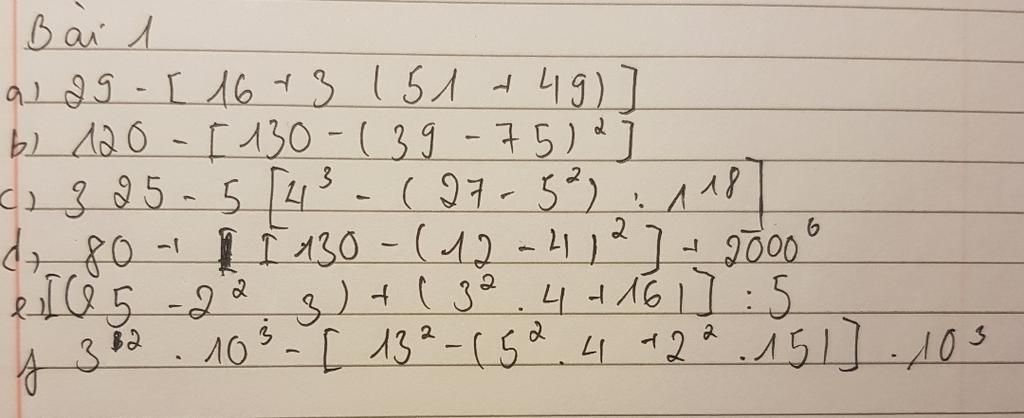 Bài 1
a) 29 - [ 16 + 3 ( 51 + 49) ]
b) 120 - [ 130 - ( 39 - 75)² ]
c) 325 - 5 [ 4³ - ( 27 - 5²) : 1¹¹⁸ ]
d) 80 - [ [ 130 - ( 12 - 4)² ] + 2000⁰
e) [( 25 - 2² . 3) + ( 3² . 4 + 16) ] : 5
f 3² . 10³ - [ 13² - ( 5² . 4 + 2² . 15) ] . 10³